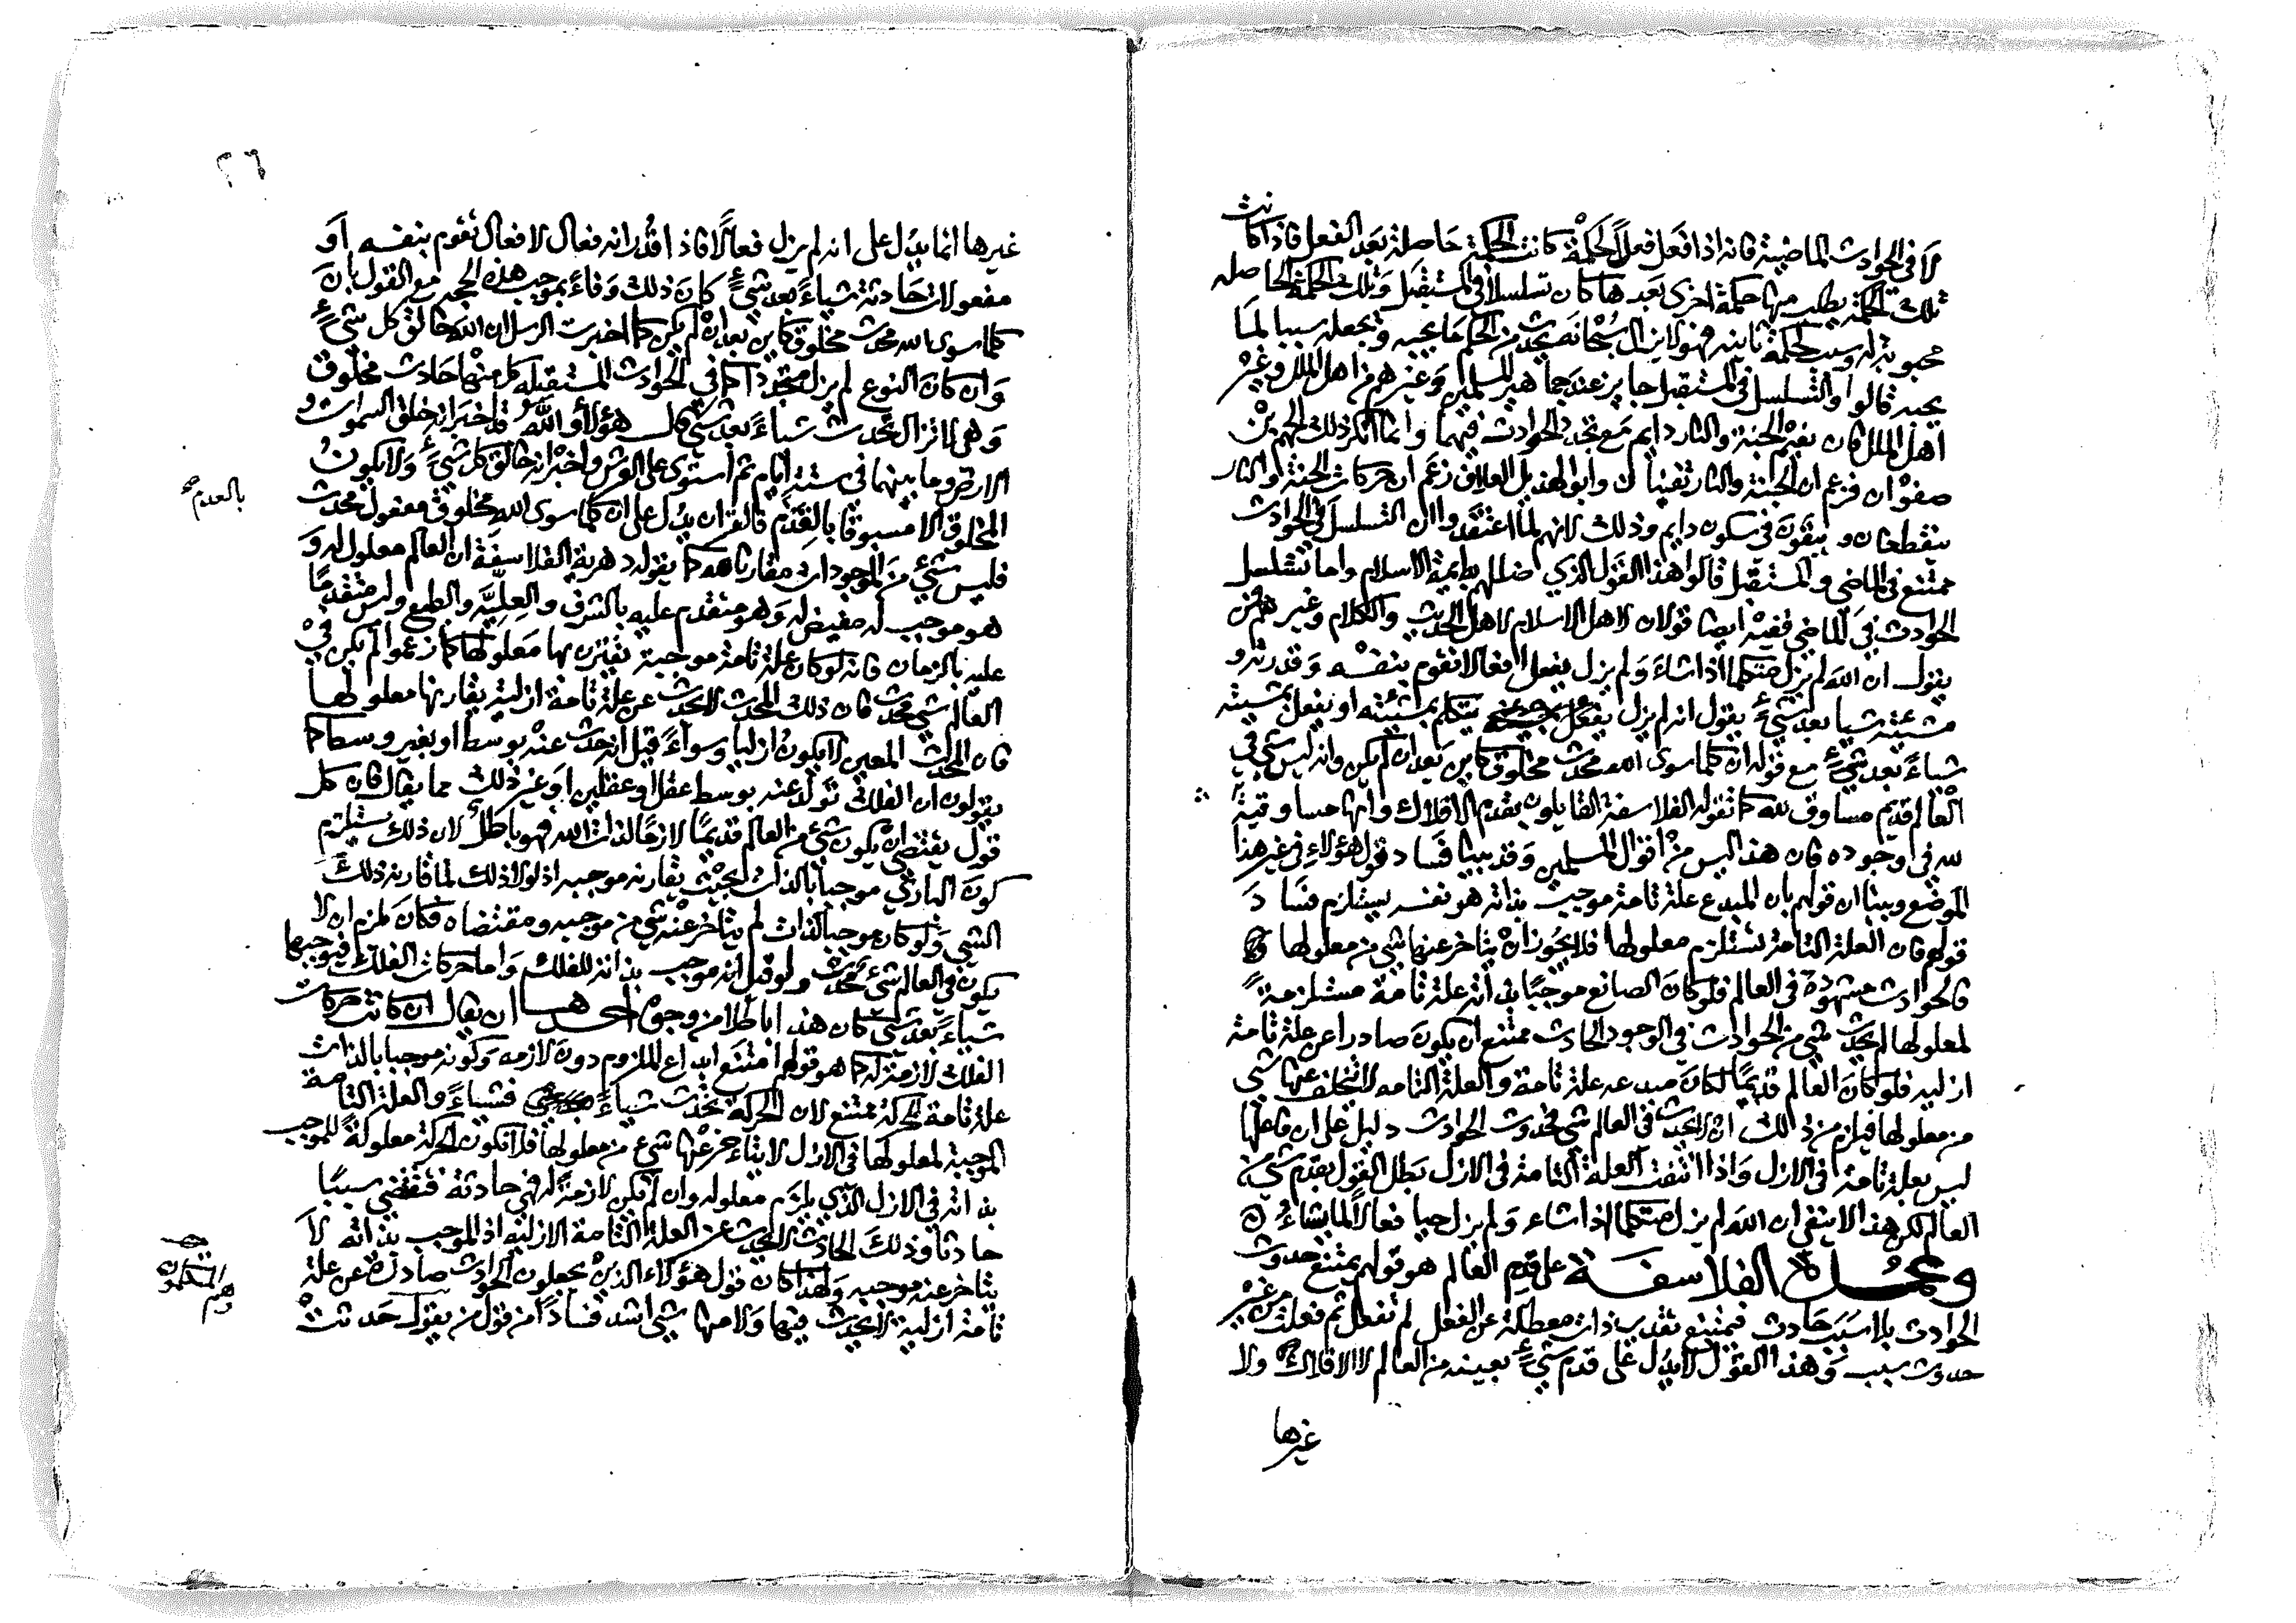 لا في الحوادث الماضية فانه اذا فعل فعلا لحكمة كانت الحكمة حاصلة بعد الفعل فاذا كانت
تلك الحكمة يطلب منها حكمة اخرى بعدها كان تسلسلا في المستقبل وتلك الحكمة الحاصله
محبوبة له وسبب لحكمة ثانية فهو لا يزال سبحانه يحدث من الحكم ما يحبه ويجعله سببا لما
يحبه قالوا والتسلسل في المستقبل جايز عند جماهير المسلمين وغيرهم من اهل الملل وغير
اهل الملل فان نعيم الجنة والنار دايم مع تجدد الحوادث فيهما وانما انكر ذلك الجهم بن
صفوان فزعم ان الجنة والنار تفنيان وابو الهذيل العلاف زعم ان حركات الجنة والنار
ينقطعان ويبقون في سكون دايم وذلك لانهم لما اعتقدوا ان التسلسل في الحوادث
ممتنع في الماضي والمستقبل قالوا هذا القول الذي ضللهم به ايمة الاسلام واما تسلسل
الحوادث في الماضي ففيه ايضا قولان لاهل الاسلام لاهل الحديث والكلام وغيرهم فمن
يقول ان الله لم يزل متكلما اذا شاء ولم يزل يفعل افعالا تقوم بنفسه وقدرته و
مشيئته شيا بعد شيء يقول انه لم يزل يفعل يتكلم بمشيئته او يفعل بمشيئته
شياء بعد شيء مع قوله ان كلما سوى الله محدث مخلوق كاين بعد ان لم يكن وانه ليس شي في
العالم قديم مساوق لله كما تقوله الفلاسفة القايلون بقدم الافلاك وانها مساوقة
لله في وجوده فان هذا ليس من اقوال المسلمين وقد بينا فساد قول هؤلاء في غير هذا
الموضع وبينا ان قولهم بان المبدع علة تامة موجب بذاته هو نفسه يستلزم فساد
قولهم فان العلة التامة تستلزم معلولها فلا يجوز ان يتاخر عنها شي من معلولها
فالحوادث مشهودة في العالم فلو كان الصانع موجبا بذاته علة تامة مستلزمة
لمعلولها لم يحدث شي من الحوادث في الوجود الحادث ممتنع ان يكون صادرا عن علة تامة
ازليه فلو كان العالم قديما لكان مبدعه علة تامة والعلة التامه لا يتخلف عنها شي
من معلولها فيلزم من ذلك ان لا يحدث في العالم شي فحدوث الحوادث دليل على ان فاعلها
ليس بعلة تامة في الازل واذا انتفت العلة التامة في الازل بطل القول بقدم شي من
العالم لكن هذا لا ينفي ان الله لم يزل متكلما اذا شاء ولم يزل حيا فعالا لما يشاء
وعمدة الفلاسفة على قدم العالم هو قولهم يمتنع حدوث
الحوادث بلا سبب حادث فيمتنع تقدير ذات معطلة عن الفعل لم تفعل ثم فعلت من غير
حدوث سبب وهذا القول لا يدل على قدم شيء بعينه من العالم لا الافلاك ولا
غيرها
٢٦
غيرها انما يدل على انه لم يزل فعالا فاذا قدر انه فعال لافعال تقوم بنفسه او
مفعولات حادثة شياء بعد شيء كان ذلك وفاء بموجب هذه الحجه مع القول بان
كلما سوى الله محدث مخلوق كاين بعد ان لم يكن كما اخبرت الرسل ان الله خالق كل شيء
وان كان النوع لم يزل متجددا كما في الحوادث المستقبله كل منها حادث مخلوق
وهي لا تزال تحدث شياء بعد شي قال هؤلاء والله قد اخبر انه خلق السموات و
الارض وما بينهما في ستة ايام ثم استوى على العرش واخبر انه خالق كل شيء ولا يكون
المخلوق الا مسبوقا بالقدم فالقران يدل على ان كلما سوى الله مخلوق مفعول محدث
بالعدم صح
فليس شيء من الموجودات مقارنا لله كما يقوله دهرية الفلاسفة ان العالم معلول له و
هو موجب له مفيض له وهو متقدم عليه بالشرف والعلية والطبع وليس متقدما
عليه بالزمان فانه لو كان علة تامة موجبة يقترن بها معلولها كما زعموا لم يكن في
العالم شي محدث فان ذلك المحدث لا يحدث عن علة تامة ازلية يقارنها معلولها
فان المحدث المعين لا يكون ازليا وسواء قيل انه حدث عنه بوسط او بغير وسط كما
يقولون ان الفلك تولد عنه بوسط عقل او عقلين او غير ذلك مما يقال فان كل
قول يقتضي ان يكون شيء من العالم قديما لازما لذات الله فهو باطل لان ذلك يستلزم
كون الباري موجبا بالذات بحيث يقارنه موجبه اذ لولا ذلك لما قارنه ذلك
الشي ولو كان موجبا بالذات لم يتاخر عنه شي من موجبه ومقتضاه فكان يلزم ان لا
يكون في العالم شيء محدث ولو قيل انه موجب بذاته للفلك واما حركات الفلك فيوجبها
شياء بعد شي كان هذا باطلا من وجوه احدها ان يقال ان كانت حركات
الفلك لازمة له كما هو قولهم امتنع ابداع الملزوم دون لازمه وكونه موجبا بالذات
علة تامة للحركة ممتنع لان الحركة تحدث شياء فشياء والعلة التامة
الموجبة لمعلولها في الازل لا يتاخر عنها شيء من معلولها فلا تكون الحركة معلولة للموجب
بذاته في الازل الذي يلزم معلوله وان لم تكن لازمة له فهي حادثة فتقتضي سببا
حادثا وذلك الحادث لا يحدث عن العلة التامة الازلية اذ الموجب بذاته لا
يتاخر عنه موجبه ولهذا كان قول هؤلاء الذين يجعلون الحوادث صادرة عن علة
تامة ازلية لا يحدث فيها ولا منها شي اشد فسادا من قول من يقول حدثت
وهم المتكلمون